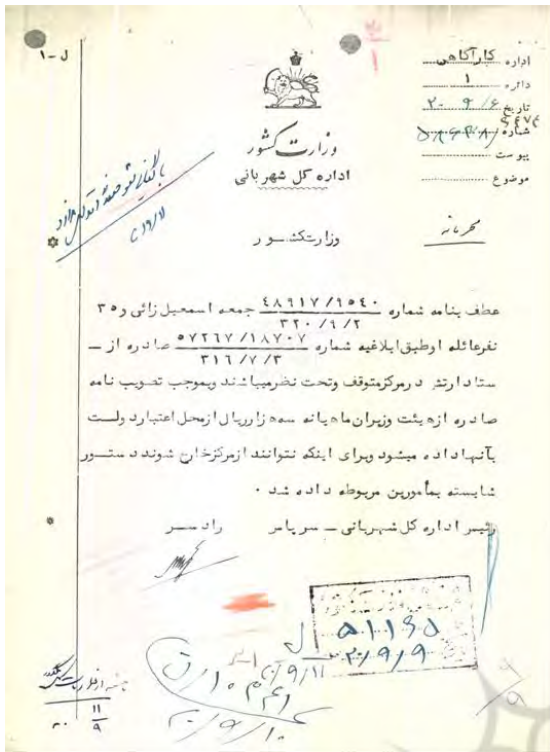 ل-۱
اداره کارآگاهی
دائره ۱
تاریخ ۲۰/۹/۶
شماره
پیوست
موضوع
وزارت کشور
اداره کل شهربانی
محرمانه
وزارتکشور
عطف بنامه شماره ۴۸۹۱۷/۹۵۴۰ جمعه اسمعیل زائی و ۳۵
۳۲۰/۹/۲
نفرعائله اوطبق ابلاغیه شماره ۵۷۲۶۷/۱۸۷۰۷ صادره از ـ
۳۱۶/۷/۳
ستاد ارتش درمرکزمتوقف وتحت نظرمیباشند وبموجب تصویب نامه
صادره ازهیئت وزیران ماهیانه سه هزارریال ازمحل اعتبار دولت
بآنها داده میشود وبرای اینکه نتوانند ازمرکزخارج شوند دستور
شایسته بمأمورین مربوطه داده شد .
رئیس اداره کل شهربانی ـ سرپاس رادسر
۵۱۱۹۵
۲۰/۹/۹
۲۰/۹/۱۱
۲۰/۹/۱۰
۱۱
۹